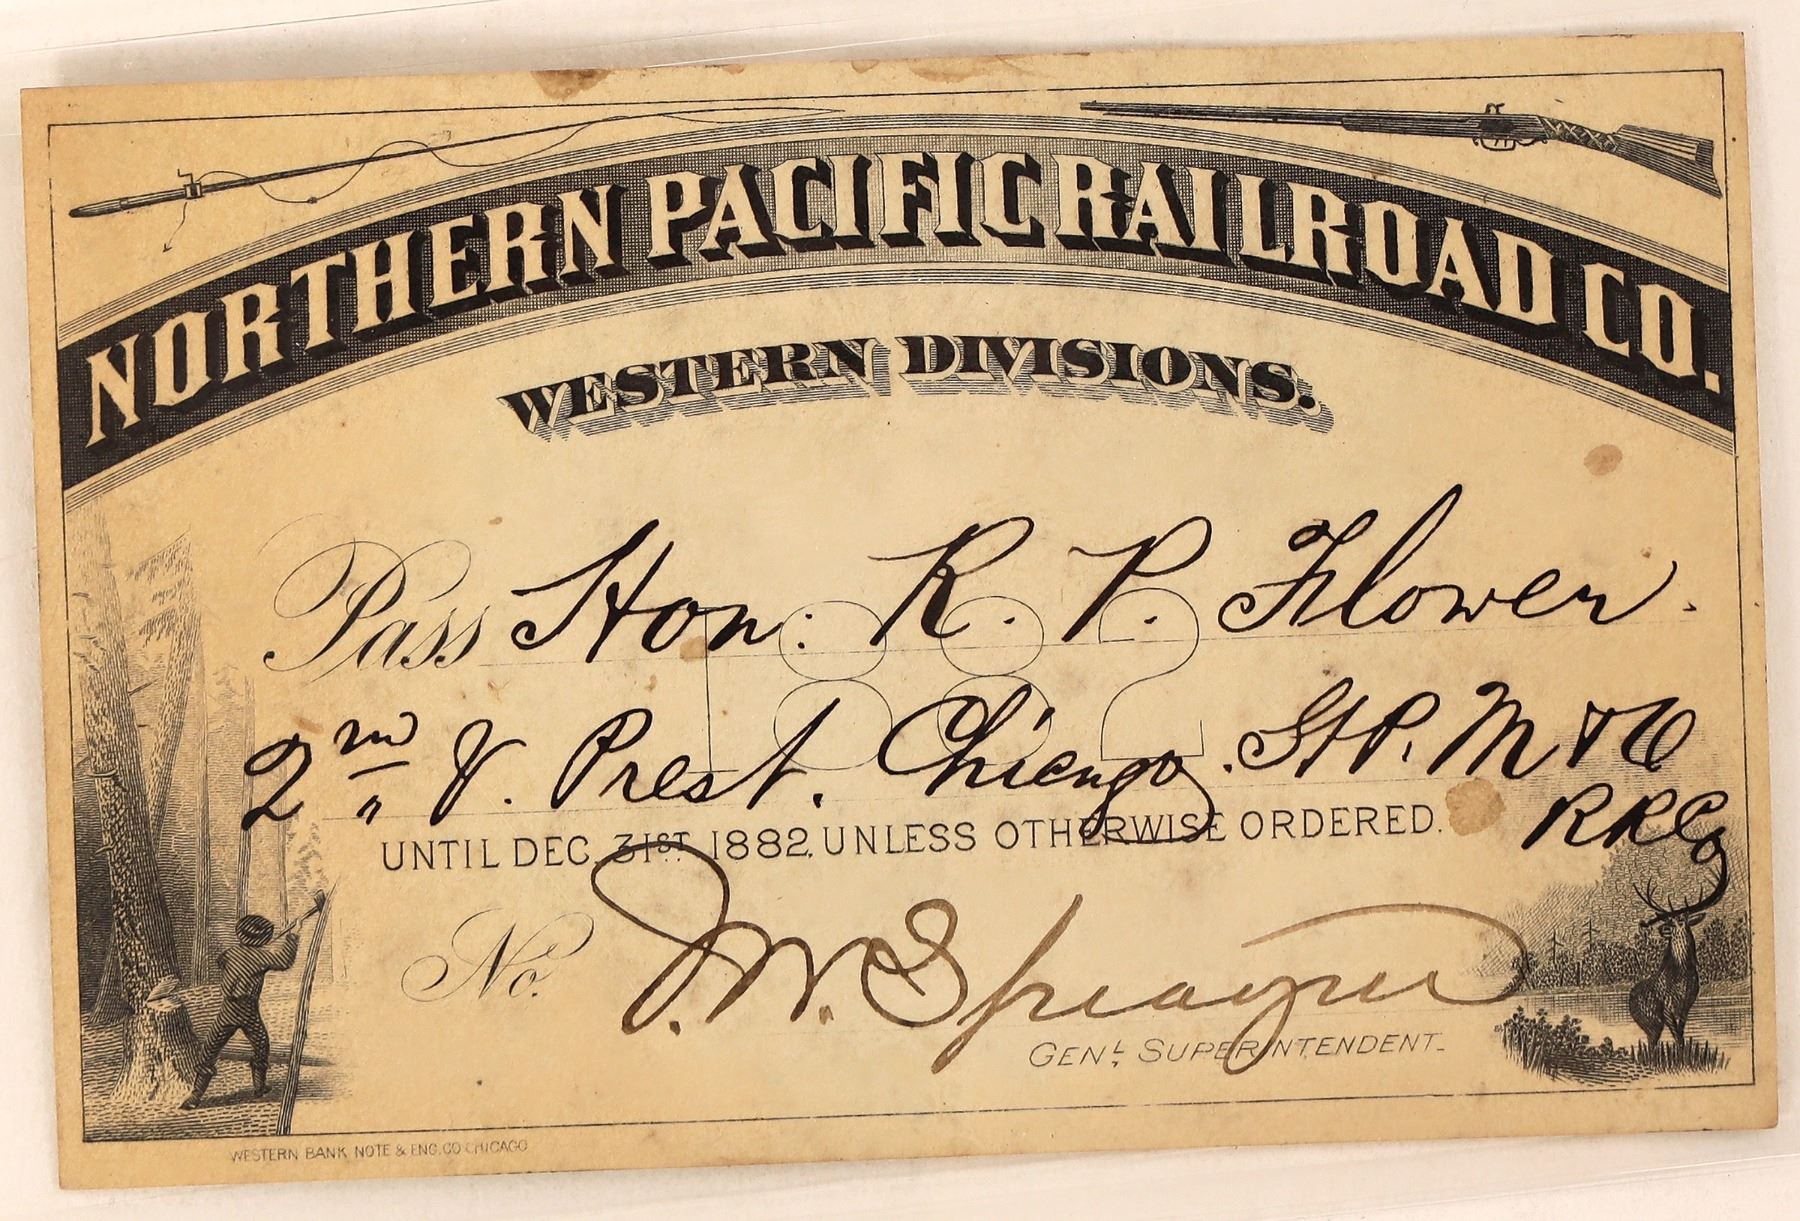 NORTHERN PACIFIC RAILROAD CO.
WESTERN DIVISIONS.
1882
Pass Hon: R. P. Flower.
2nd V. Prest. Chicago. St P. M & O
RRCo
UNTIL DEC. 31ST 1882, UNLESS OTHERWISE ORDERED.
No. J. W. Sprague
GENL SUPERINTENDENT.
WESTERN BANK NOTE & ENG. CO CHICAGO